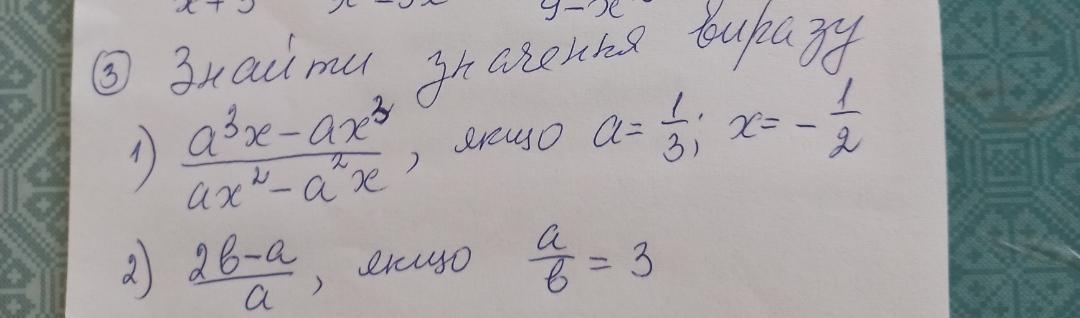 ③ Знайти значення виразу
1) (a³x - ax³)/(ax² - a²x), якщо a = 1/3; x = - 1/2
2) (2b - a)/a, якщо a/b = 3